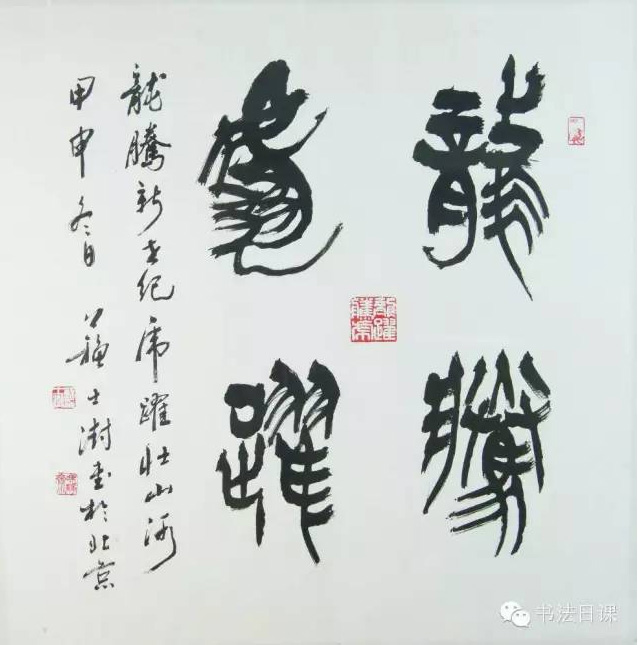 龍騰
虎躍
龍騰新世紀虎躍壯山河
甲申冬日蘇士澍書於北京
书法日课